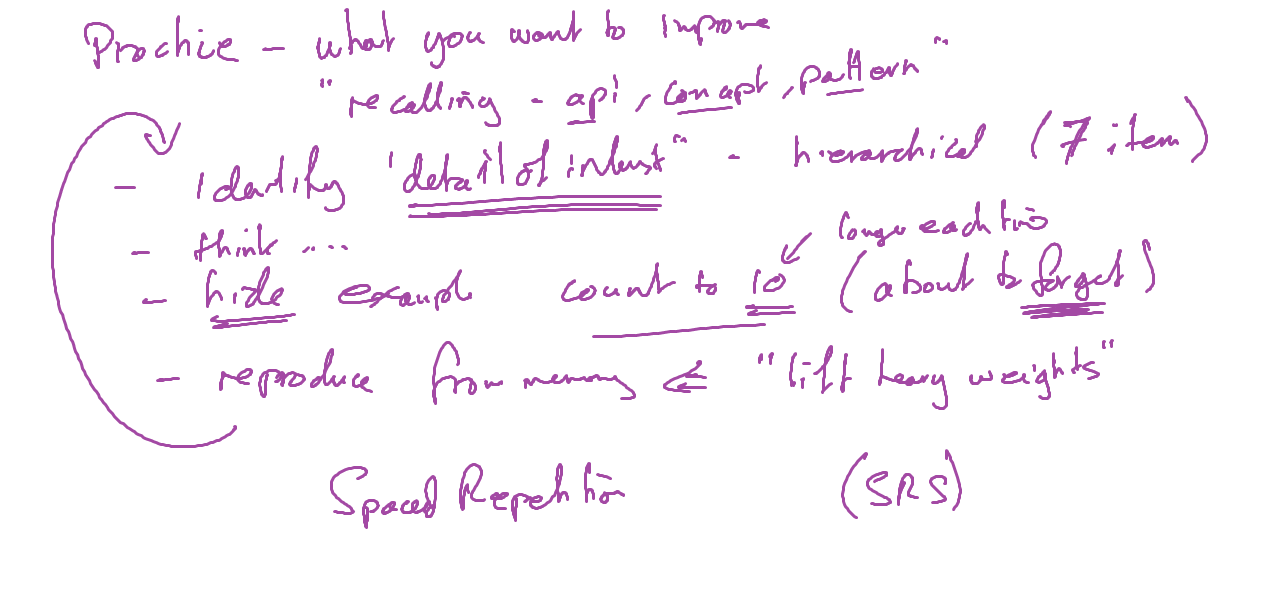 Practice - what you want to improve
"recalling - api, concept, pattern"
- Identify 'detail of interest" - hierarchical (7 item)
- think ....
longer each time
- hide example count to 10 (about to forget)
- reproduce from memory ⇐ "lift heavy weights"
Spaced Repetition (SRS)